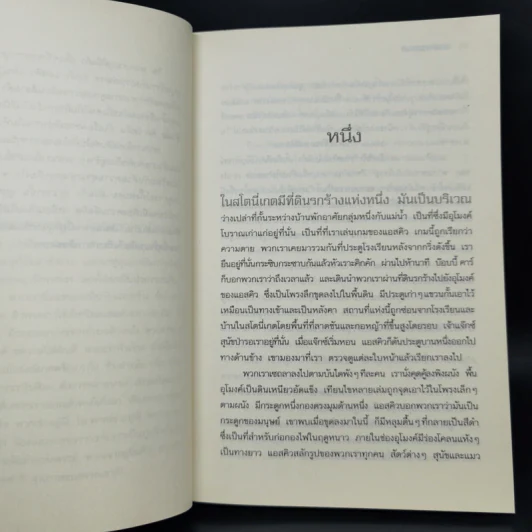 หนึ่ง
ในสโตนี่เกตมีที่ดินรกร้างแห่งหนึ่ง มันเป็นบริเวณ
ว่างเปล่าที่กั้นระหว่างบ้านพักอาศัยกลุ่มหนึ่งกับแม่น้ำ เป็นที่ซึ่งมีอุโมงค์
โบราณเก่าแก่อยู่ที่นั่น เป็นที่ที่เราเล่นเกมของแอสคิว เกมนี้ถูกเรียกว่า
ความตาย พวกเราเคยมารวมกันที่ประตูโรงเรียนหลังจากกริ่งดังขึ้น เรา
ยืนอยู่ที่นั่นกระซิบกระซาบกันแล้วหัวเราะคิกคัก ผ่านไปห้านาที บ๊อบบี้ คาร์
ก็บอกพวกเราว่าถึงเวลาแล้ว และเดินนำพวกเราผ่านที่ดินรกร้างไปยังอุโมงค์
ของแอสคิว ซึ่งเป็นโพรงลึกขุดลงไปในพื้นดิน มีประตูเก่าๆแขวนกั้นเอาไว้
เหมือนเป็นทางเข้าและเป็นหลังคา สถานที่แห่งนี้ถูกซ่อนจากโรงเรียนและ
บ้านในสโตนี่เกตโดยพื้นที่ที่ลาดชันและกอหญ้าที่ขึ้นสูงโดยรอบ เจ้าแจ๊กซ์
สุนัขป่ารอเราอยู่ที่นั่น เมื่อแจ๊กซ์เริ่มหอน แอสคิวก็ดันประตูบานหนึ่งออกไป
ทางด้านข้าง เขามองมาที่เรา ตรวจดูแต่ละใบหน้าแล้วเรียกเราลงไป
พวกเราเซถลาลงไปตามบันไดพังๆ ทีละคน เรานั่งคุดคู้ลงพิงผนัง พื้น
อุโมงค์เป็นดินเหนียวอัดแข็ง เทียนไขหลายเล่มถูกจุดเอาไว้ในโพรงเล็กๆ
ตามผนัง มีกระดูกหนึ่งกองตรงมุมด้านหนึ่ง แอสคิวบอกพวกเราว่ามันเป็น
กระดูกของมนุษย์ เขาพบเมื่อขุดลงมาในนี้ ก็มีหลุมตื้นๆ ที่กลายเป็นสีดำ
ซึ่งเป็นที่สำหรับก่อกองไฟในฤดูหนาว ภายในช่องอุโมงค์มีร่องโคลนแห้งๆ
เป็นทางยาว แอสคิวสลักรูปของพวกเราทุกคน สัตว์ต่างๆ สุนัขและแมว